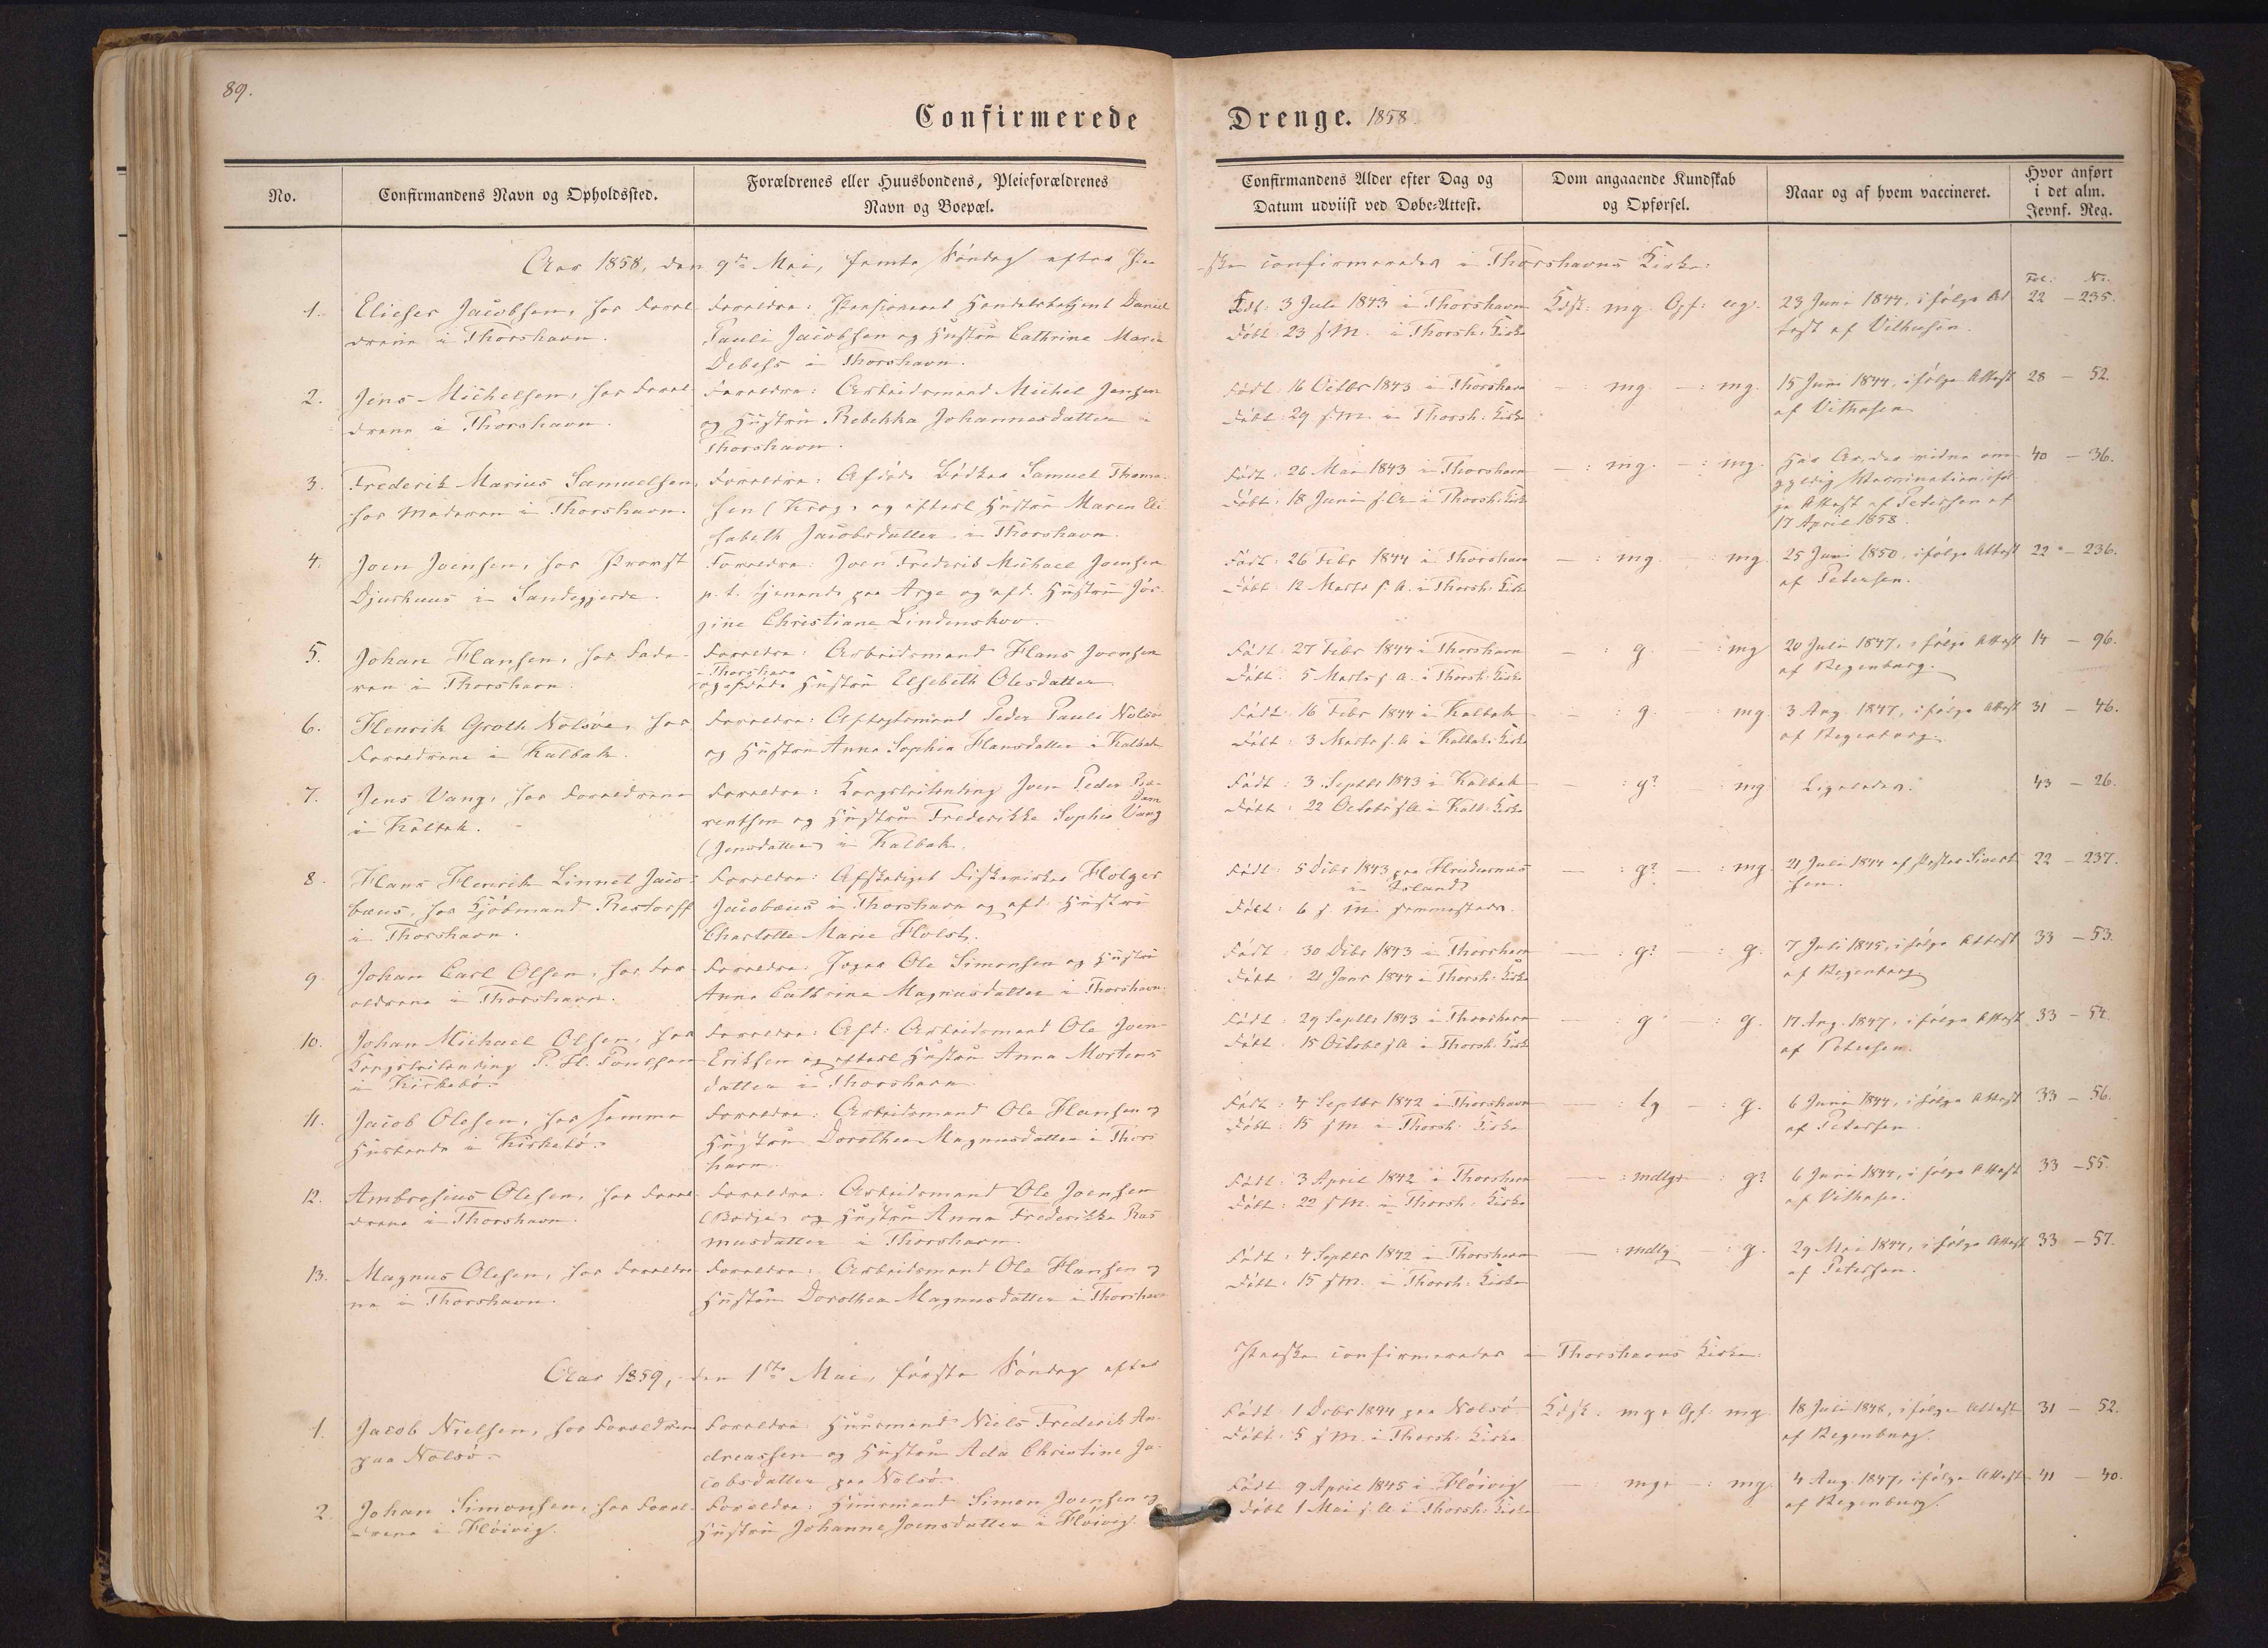 89.
Confirmerede
Drenge. 1858
No.
Confirmandens Navn og Opholdssted.
Forældrenes eller Huusbondens, Pleieforældrenes
Navn og Boepæl.
Confirmandens Alder efter Dag og
Datum udviist ved Døbe-Attest.
Dom angaaende Kundskab
og Opførsel.
Naar og af hvem vaccineret.
Hvor anført
i det alm.
Jevnf. Reg.
Aar 1858, den 9de Mai, femte Søndag efter Paa
-ske confirmeredes i Thorshavns Kirke:
Fol. No.
1. Elieser Jacobsen, hos Foræl-
drene i Thorshavn.
Forældre: Pensioneret Handelsbetjent Daniel
Pauli Jacobsen og Hustru Cathrine Marie
Debess i Thorshavn.
Født: 3 Juli 1843 i Thorshavn
Døbt 23 s. M. i Thorsh: Kirke
Kdsk: mg. Opf: ug.
23 Juni 1844, ifølge At-
test af Vilhusen.
22 - 235.
2. Jens Michelsen, hos Foræl-
drene i Thorshavn.
Forældre: Arbeidsmand Michel Jensen
og Hustru Rebekka Johannesdatter i
Thorshavn.
Født 16 Octbr 1843 i Thorshavn
Døbt 29 s. M. i Thorsh: Kirke
- : mg. - : mg.
15 Juni 1844, ifølge Attest
af Vilhusen
28 - 52.
3. Frederik Marius Samuelsen,
hos Moderen i Thorshavn.
Forældre: Afdøde Bødker Samuel Thoma-
sen (Krog) og efterl Hustru Maren Eli-
sabeth Jacobsdatter i Thorshavn.
Født: 26 Mai 1843 i Thorshavn
Døbt: 18 Juni s. A. i Thorsh: Kirke
- : mg. - : mg.
Har Ar, der vidne om
gyldig Vaccination, iføl-
ge Attest af Petersen af
17 April 1858.
40 - 36.
4. Joen Joensen, hos Provst
Djurhuus i Sandegjerde.
Forældre: Joen Frederik Michael Joensen
p. t. tjenende paa Arge og afd. Hustru Jør-
gine Christiane Lindenskov.
Født: 26 Febr 1844 i Thorshavn
Døbt: 12 Marts s. A. i Thorsh: Kirke
- : mg. - : mg.
25 Juni 1850, ifølge Attest
af Petersen.
22 - 236.
5. Johan Hansen, hos Fade-
ren i Thorshavn.
Forældre: Arbeidsmand Hans Joensen
i Thorshavn
og afdøde Hustru Elsebeth Olesdatter
Født: 27 Febr 1844 i Thorshavn
Døbt: 5 Marts s. A. i Thorsh: Kirke
- : g. - : mg
20 Juli 1847, ifølge Attest
af Regenburg.
14 - 96.
6. Henrik Groth Nolsøe, hos
Forældrene i Kalbak.
Forældre: Aftægtsmand Peder Pauli Nolsøe
og Hustru Anna Sophia Hansdatter i Kalbak
Født: 16 Febr 1844 i Kalbak
Døbt: 3 Marts s. A. i Kalbaks Kirke
- : g. - : mg.
3 Aug. 1847, ifølge Attest
af Regenburg.
31 - 46.
7. Jens Vang, hos Forældrene
i Kalbak.
Forældre: Kongsbilending Joen Peder
rentsen og Hustru Frederikke Sophie Vang
(Jensdatter) i Kalbak.
Født: 3. Septbr 1843 i Kalbak
Døbt: 22 Octobr s. A. i Kalb: Kirke
- : g? - mg
Ligeledes.
43 - 26.
8. Hans Henrik Linnet Jaco-
bæus, hos Kjøbmand Restorff
i Thorshavn.
Forældre: Afskediget Fiskevirker Holger
Jacobæus i Thorshavn og afd. Hustru
Charlotte Marie Holst.
Født: 5 Dcbr 1843 paa
i Island
Døbt: 6 s. M. sammesteds.
- : g? - : mg
21 Juli 1844 af Provst Sivert-
sen.
22 - 237.
9. Johan Carl Olsen, hos For-
ældrene i Thorshavn.
Forældre: Ole Simonsen og Hustru
Anna Cathrine Magnusdatter i Thorshavn.
Født: 30 Dcbr 1843 i Thorshavn
Døbt: 21 Janr 1844 i Thorsh: Kirke
- : g? - : g.
7 Juli 1845, ifølge Attest
af Regenburg.
33 - 53.
10. Johan Michael Olsen, hos
Kongsbilending P. H. Poulsen
i Kirkebø.
Forældre: Afd: Arbeidsmand Ole Joen-
Eriksen og efterl Hustru Anna Mortens-
datter i Thorshavn
Født: 29 Septbr 1843 i Thorshavn
Døbt 15 Octobr s. A. i Thorsh: Kirke
- : g - : g.
17 Aug. 1847, ifølge Attest
af Petersen.
33 - 54.
11. Jacob Olesen, hos samme
Husbonde i Kirkebø.
Forældre: Arbeidsmand Ole Hansen og
Hustru Dorothea Magnusdatter i Thors-
havn.
Født: 4 Septbr 1842 i Thorshavn
Døbt: 15 s. M. i Thorsh: Kirke
- : tg - : g.
6 Juni 1844, ifølge Attest
af Petersen.
33 - 56.
12. Ambrosius Olesen, hos Foræl-
drene i Thorshavn.
Forældre: Arbeidsmand Ole Joensen
og Hustru Anna Frederikka Ras-
musdatter i Thorshavn.
Født: 3 April 1842 i Thorshavn
Døbt: 22 s. M. i Thorsh: Kirke
- : mdlg+ - : g?
6 Juni 1844, ifølge Attest
af Vilhusen.
33 - 55.
13. Magnus Olesen, hos Forældre-
ne i Thorshavn.
Forældre: Arbeidsmand Ole Hansen og
Hustru Dorothea Magnusdatter i Thorshavn
Født: 4 Septbr 1842 i Thorshavn
Døbt: 15 s. M. i Thorsh: Kirke
- : mdlg - : g.
29 Mai 1844, ifølge Attest
af Petersen.
33 - 57.
Aar 1859, den 1ste Mai, første Søndag efter
Paaske confirmeredes i Thorshavns Kirke.
1. Jacob Nielsen, hos Forældrene
paa Nolsø.
Forældre: Huusmand Niels Frederik An-
dreassen og Hustru Ada Christine Ja-
cobsdatter paa Nolsø.
Født 1 Dcbr 1844 paa Nolsø
Døbt: 5 s. M. i Thorsh: Kirke
Kdsk. mg+ Opf mg.
18 Juli 1848, ifølge Attest
af Regenburg.
31 - 52.
2. Johan Simonsen, hos Foræl-
drene i Høivig.
Forældre: Huusmand Simon Joensen og
Hustru Johanne Joensdatter i Høivig.
Født 9 April 1845 i Høivig
Døbt 1 Mai s. A. i Thorsh: Kirke
- mg+ - : mg.
4 Aug. 1847, ifølge Attest
af Regenburg.
41 - 40.